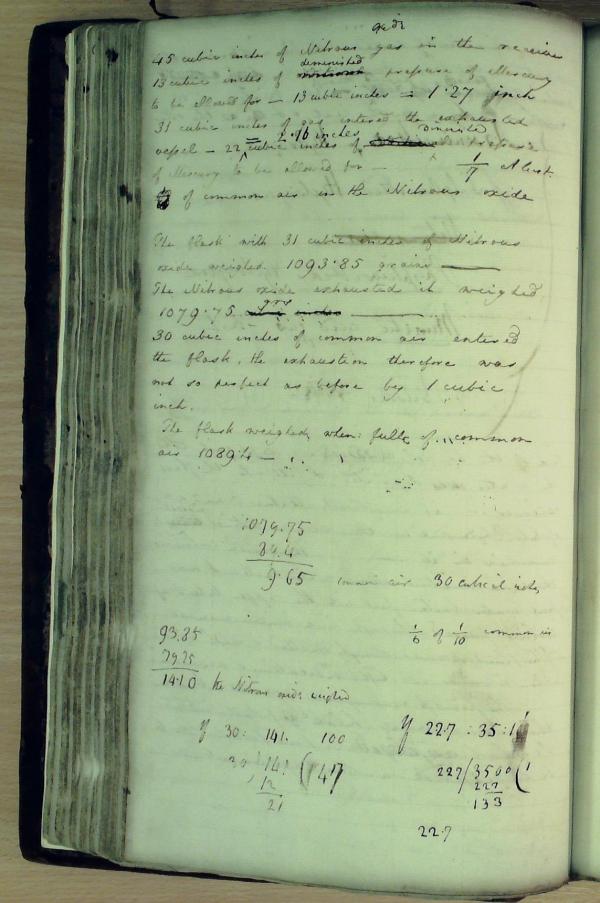 45 cubic inches of Nitrous gas in the receiver
diminished
13 cubic inches of pressure of Mercury
to be allowed for — 13 cubic inches = 1.27 inch
31 cubic inches of gas entered the exhausted
= 2.16 inches diminished
vessel — 22 cubic inches of pressure
of Mercury to be allowed for — 1/17 At least
of common air in the Nitrous oxide
The flask with 31 cubic inches of Nitrous
oxide weighed 1093.85 grains —
The Nitrous oxide exhausted it weighed
grs
1079.75 cubic inches —
30 cubic inches of common air entered
the flask, the exhaustion therefore was
not so perfect as before by 1 cubic
inch.
The flask weighed, when full, of common
air 1089.4 —
1079.75
89.4
9.65 common air 30 cubical inches
93.85 1/6 of 1/10 common air
79.75
14.10 the Nitrous oxide weighed
If 30: 141. 100 If 22.7 : 35:1
30 141 (47 227/3500(1
12 227
21 133
22.7